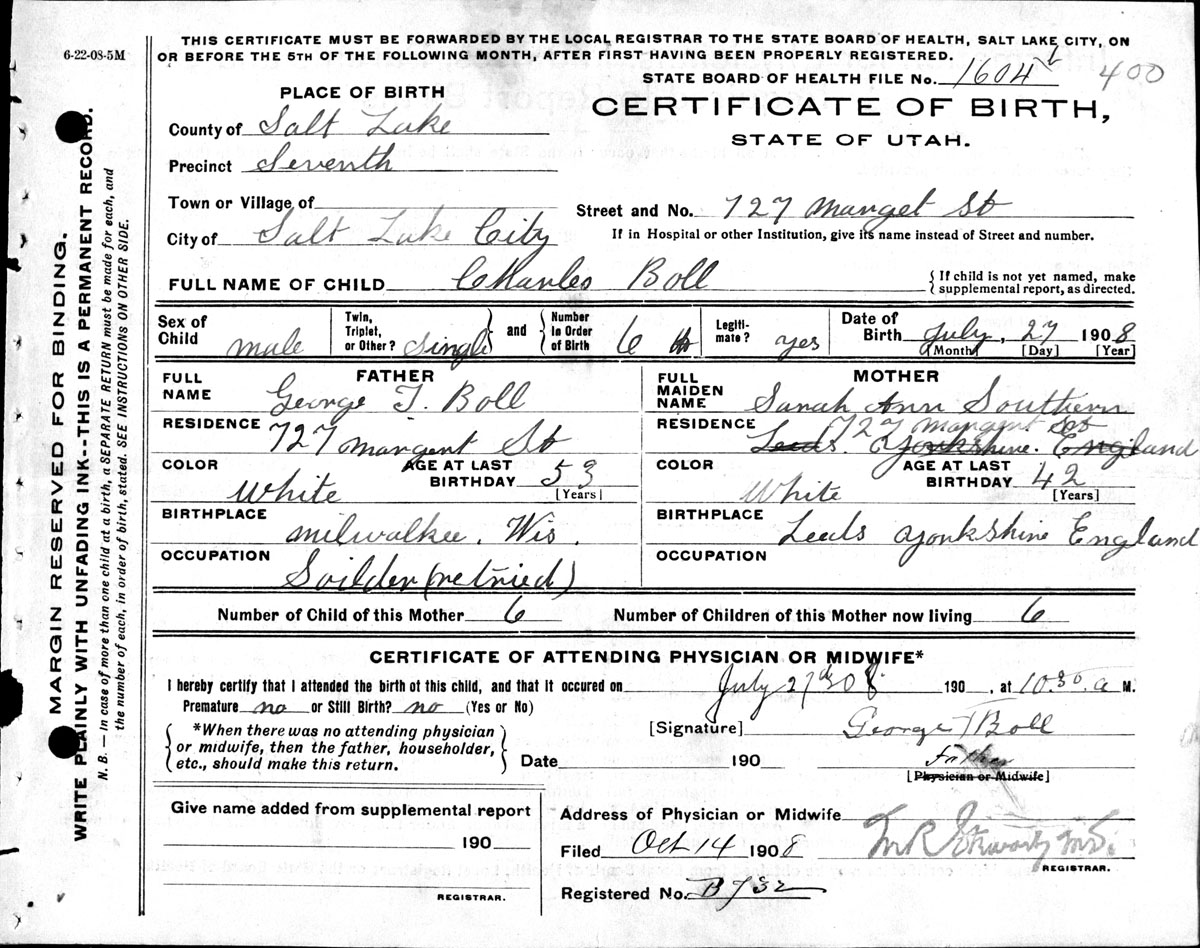 6-22-08-5M
THIS CERTIFICATE MUST BE FORWARDED BY THE LOCAL REGISTRAR TO THE STATE BOARD OF HEALTH, SALT LAKE CITY, ON
OR BEFORE THE 5TH OF THE FOLLOWING MONTH, AFTER FIRST HAVING BEEN PROPERLY REGISTERED.
STATE BOARD OF HEALTH FILE No. 1604 400
PLACE OF BIRTH
CERTIFICATE OF BIRTH,
STATE OF UTAH.
County of Salt Lake
Precinct Seventh
Town or Village of
Street and No. 727 Manget St
City of Salt Lake City
If in Hospital or other Institution, give its name instead of Street and number.
FULL NAME OF CHILD Charles Boll
{ If child is not yet named, make
supplemental report, as directed.
Sex of Child male
Twin, Triplet, or Other? single and Number in Order of Birth 6 th
Legiti-mate? yes
Date of Birth July, 27 1908
[Month] [Day] [Year]
FATHER
FULL NAME George T. Boll
RESIDENCE 727 Mangent St
COLOR White
AGE AT LAST BIRTHDAY 53
[Years]
BIRTHPLACE Milwalkee. Wis.
OCCUPATION Soilder (retried)
MOTHER
FULL MAIDEN NAME Sarah Ann Southern
RESIDENCE 727 Mangent St
Leeds. Yorkshire. England
COLOR White
AGE AT LAST BIRTHDAY 42
[Years]
BIRTHPLACE Leeds Yorkshire England
OCCUPATION
Number of Child of this Mother 6 Number of Children of this Mother now living 6
CERTIFICATE OF ATTENDING PHYSICIAN OR MIDWIFE*
I hereby certify that I attended the birth of this child, and that it occured on July 27 08 190 , at 10.30. a M.
Premature no or Still Birth? no (Yes or No)
*When there was no attending physician
or midwife, then the father, householder,
etc., should make this return.
[Signature] George T Boll
Date 190
Father
[Physician or Midwife]
Give name added from supplemental report
190
REGISTRAR.
Address of Physician or Midwife
Filed Oct 14 1908
REGISTRAR.
Registered No. B 732
MARGIN RESERVED FOR BINDING.
WRITE PLAINLY WITH UNFADING INK--THIS IS A PERMANENT RECORD.
N. B. — In case of more than one child at a birth, a SEPARATE RETURN must be made for each, and
the number of each, in order of birth, stated. SEE INSTRUCTIONS ON OTHER SIDE.